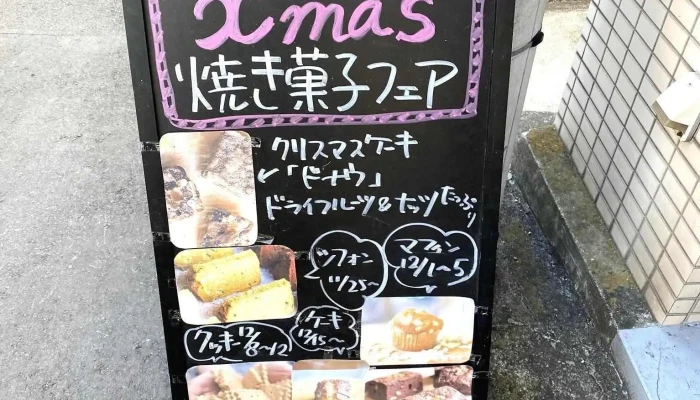 Xmas
焼き菓子フェア
クリスマスケーキ
「ドナウ」
ドライフルーツ&ナッツたっぷり
シフォン
11/25~
マフィン
12/1~5
ケーキ
12/15~
クッキー12/8~12